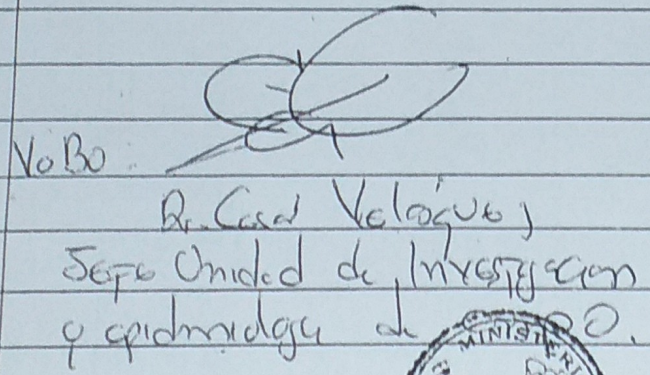 VoBo
Dr. Cesar Velásquez
Jefe Unidad de Investigacion
y epidmidga de
MINISTERI